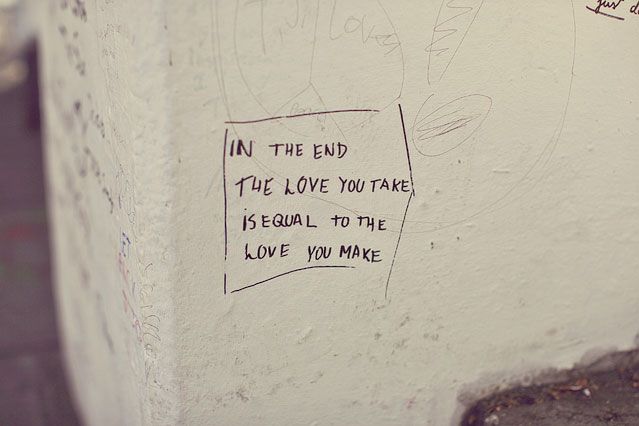 just
LOVE
IN THE END
THE LOVE YOU TAKE
IS EQUAL TO THE
LOVE YOU MAKE